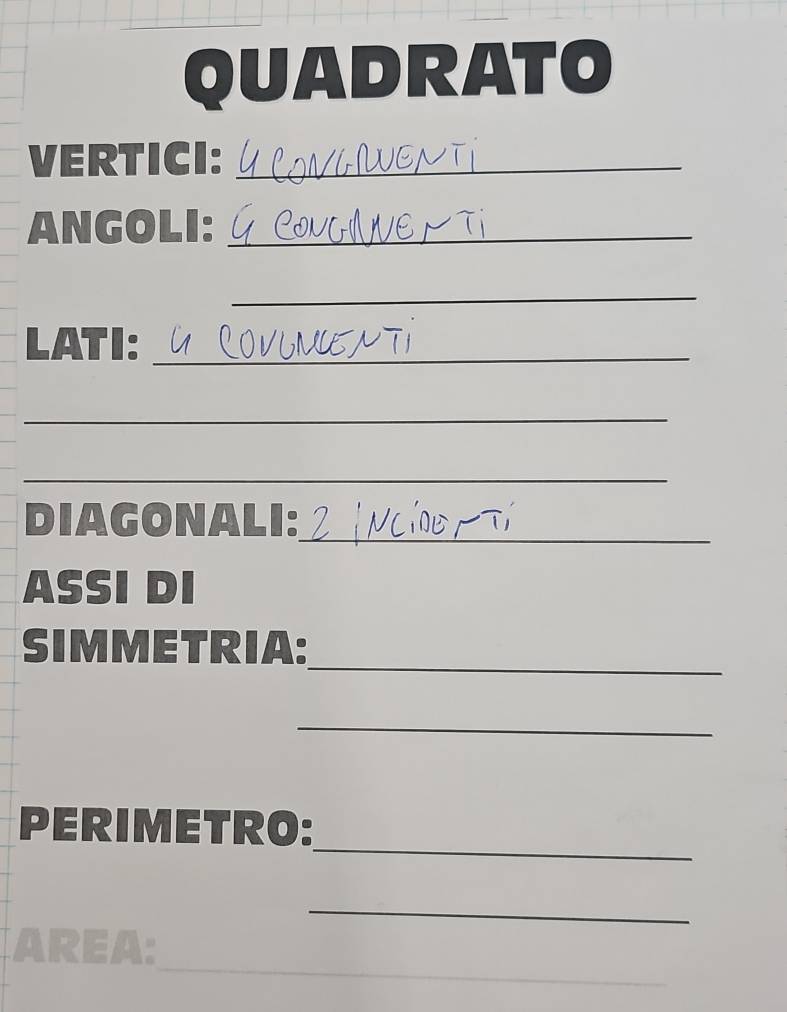 QUADRATO
VERTICI: 4 CONGRUENTI
ANGOLI: 4 CONGRUENTI
LATI: 4 CONGRUENTI
DIAGONALI: 2 INCIDENTI
ASSI DI
SIMMETRIA:
PERIMETRO:
AREA: